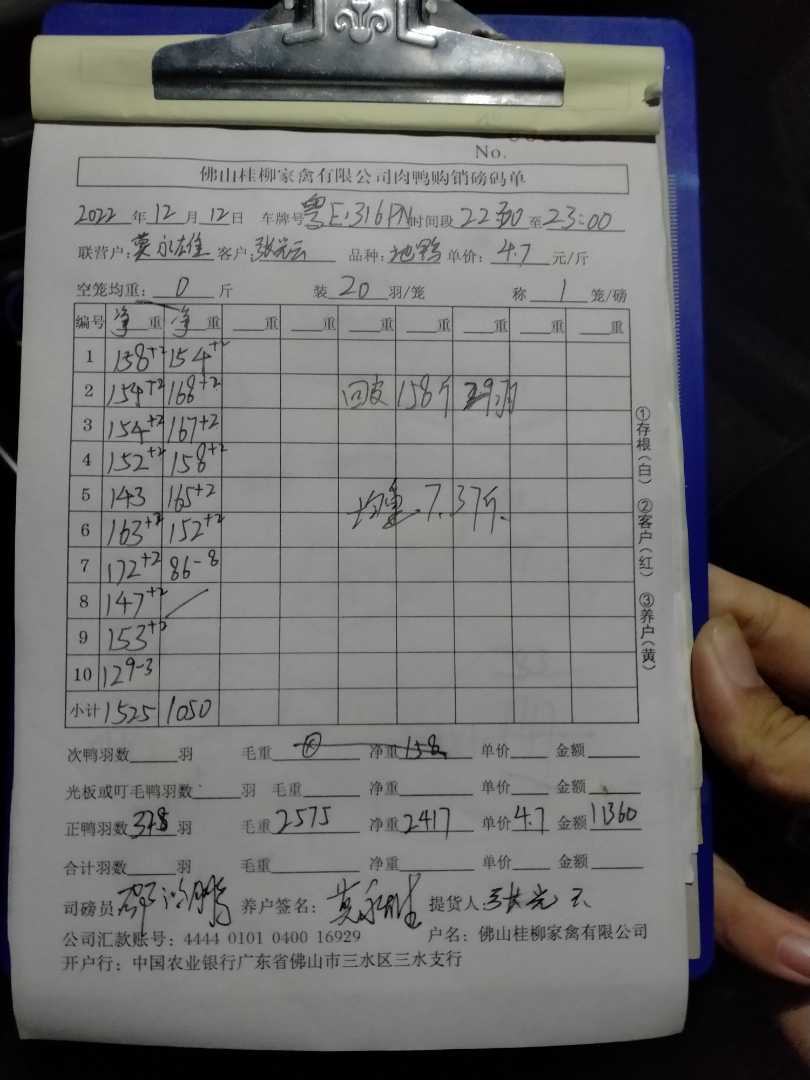 No.
佛山桂柳家禽有限公司肉鸭购销磅码单
2022年12月12日 车牌号粤E·316PN时间段22:30至23:00
联营户:黄永雄 客户:张光云 品种:地鸭 单价:4.7元/斤
空笼均重:0斤 装20羽/笼 称1笼/磅
编号 净重 净重 重 重 重 重 重 重 重
1 158+2 154+2
2 154+2 168+2 回皮 158斤
3 154+2 167+2
4 152+2 158+2
5 143 165+2 均重 7.37斤
6 163+2 152+2
7 172+2 86-8
8 147+2
9 153+2
10 129-3
小计 1525 1050
①存根(白) ②客户(红) ③养户(黄)
次鸭羽数 羽 毛重 净重158 单价 金额
光板或叮毛鸭羽数 羽 毛重 净重 单价 金额
正鸭羽数 羽 毛重2575 净重2417 单价4.7 金额11360
合计羽数 羽 毛重 净重 单价 金额
司磅员 养户签名: 黄永雄 提货人 张光云
公司汇款账号:4444 0101 0400 16929 户名:佛山桂柳家禽有限公司
开户行:中国农业银行广东省佛山市三水区三水支行